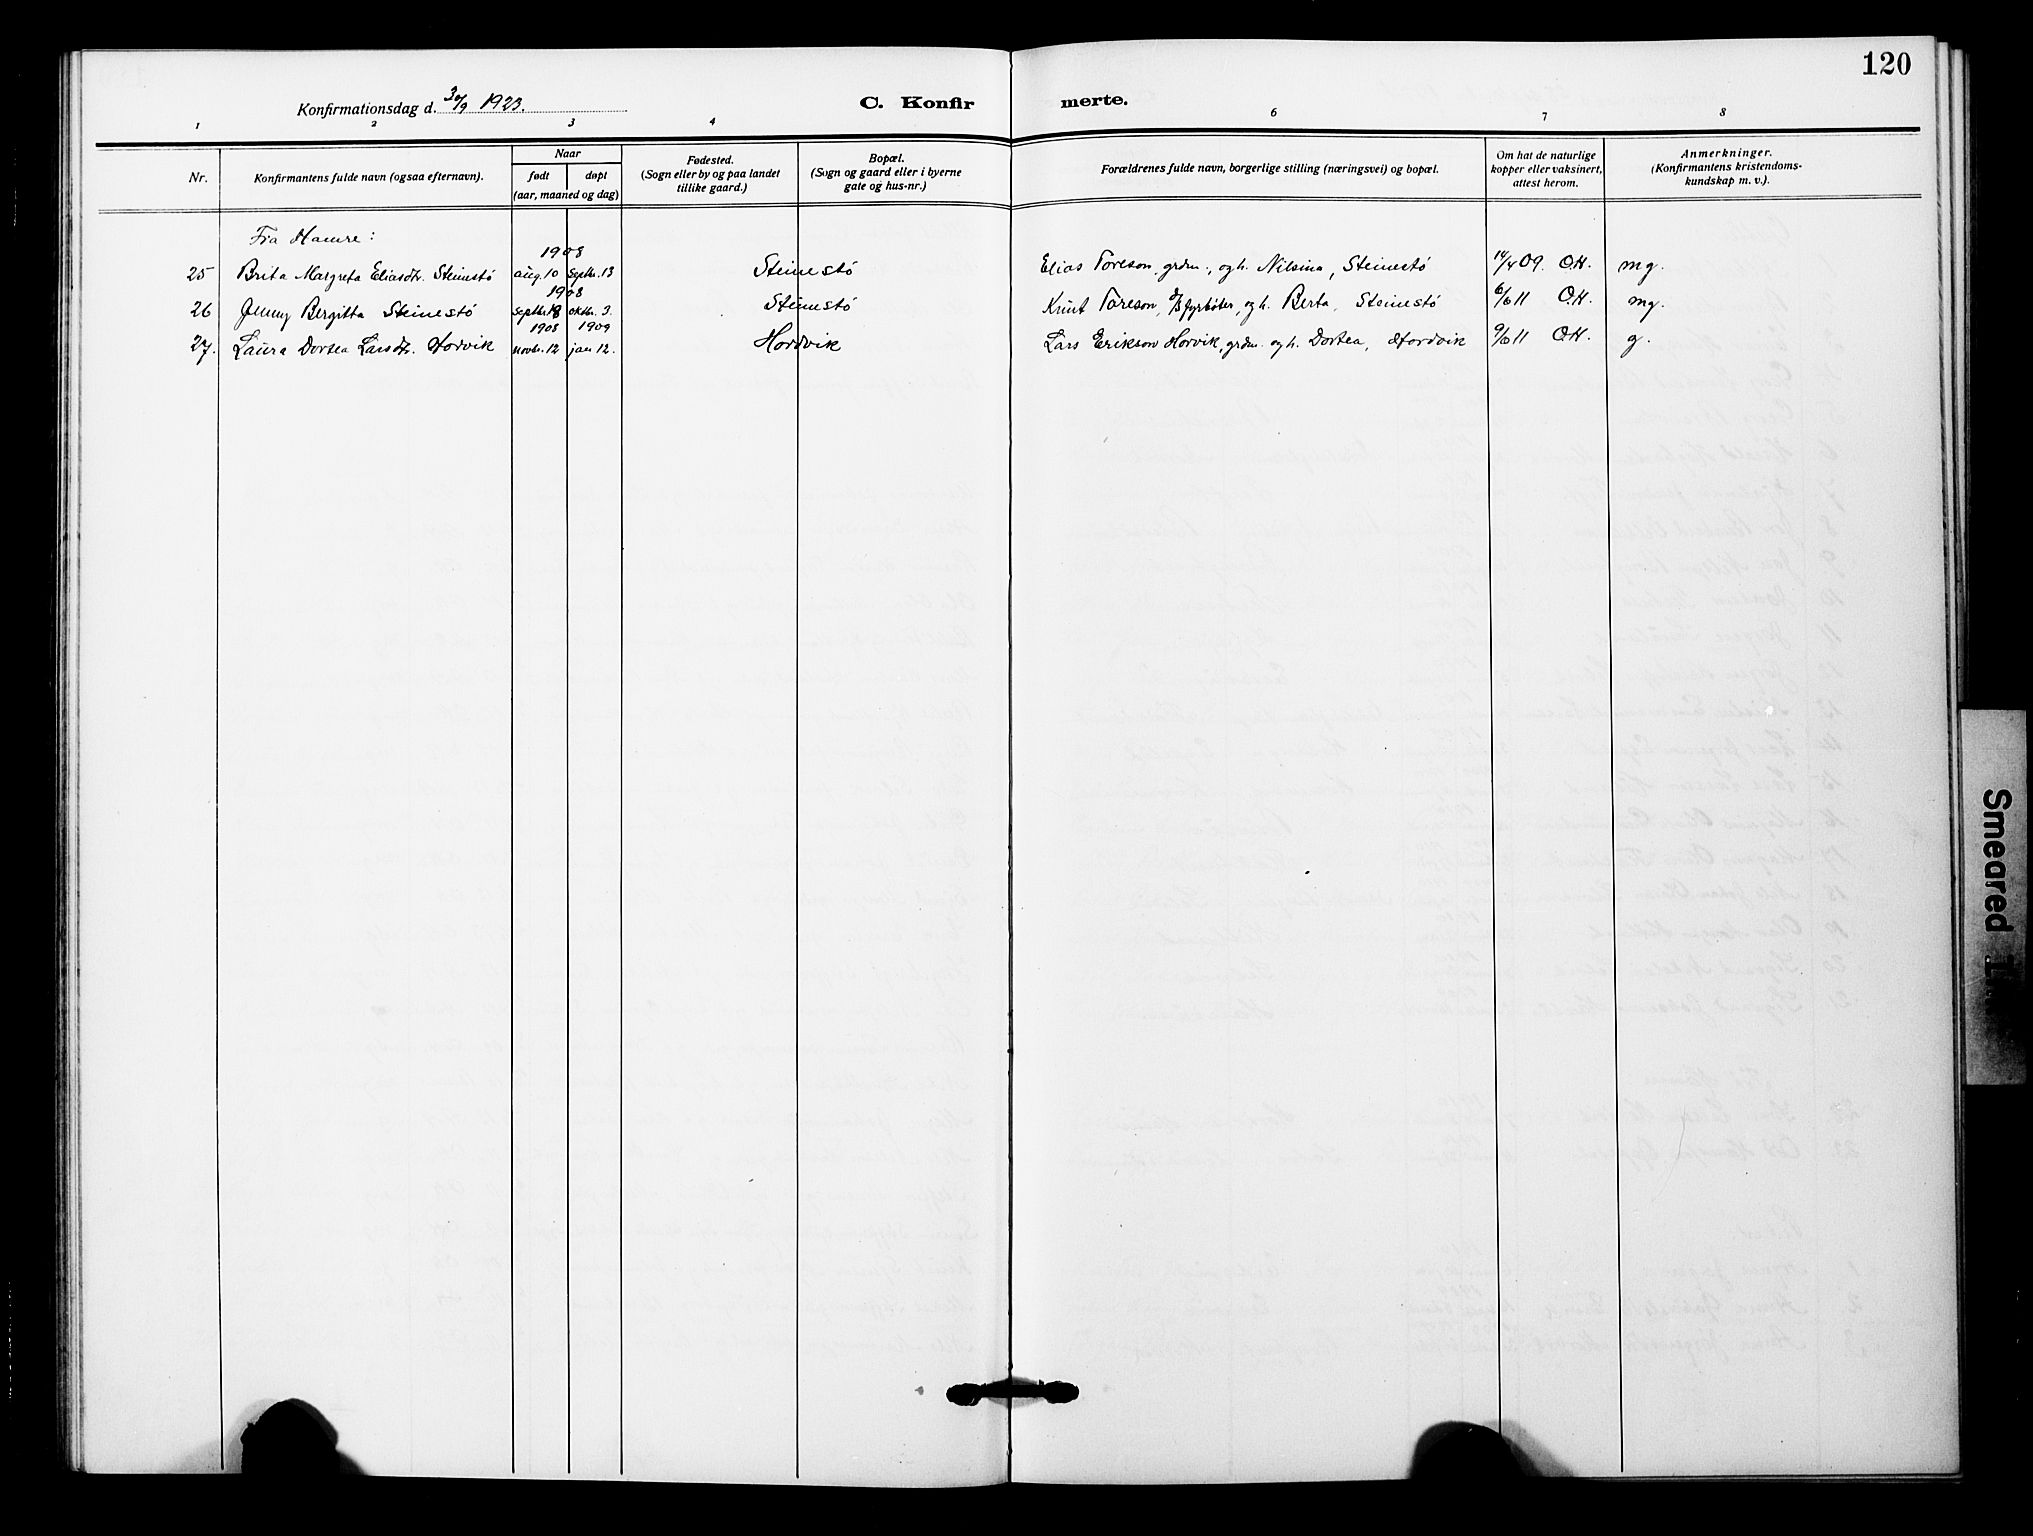 120
Konfirmationsdag d. 30/9 1923.
C. Konfirmerte.
1 2 3 4 6 7 8
Nr.
Konfirmantens fulde navn (ogsaa efternavn).
Naar
født
døpt
(aar, maaned og dag)
Fødested.
(Sogn eller by og paa landet
tillike gaard.)
Bopæl.
(Sogn og gaard eller i byerne
gate og hus-nr.)
Forældrenes fulde navn, borgerlige stilling (næringsvei) og bopæl.
Om hat de naturlige
kopper eller vaksinert,
attest herom.
Anmerkninger.
(Konfirmantens kristendoms-
kundskap m. v.).
Fra Hamre:
1908
25 Brita Margreta Eliasdtr. Steinestø aug. 10 septbr. 13 Steinestø Elias Toreson, grdm., og h. Nilsina, Steinestø 14/4 09. O.H. mg.
1908
26 Jenny Bergitta Steinestø septbr. 18 oktbr. 3. Steinestø Knut Toreson, fyrbøter, og h. Berta, Steinestø 6/6 11 O.H. mg.
1908 1909
27. Laura Dortea Larsdtr. Hordvik novbr. 12 jan 12. Hordvik Lars Erikson Horvik, grdm. og h. Dortea, Hordvik 9/6 11 O.H. g.
Smeared